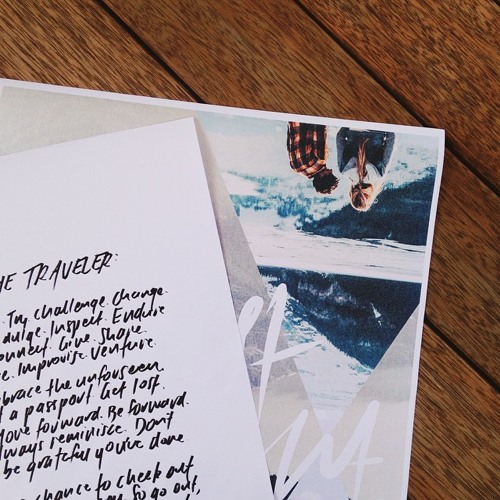 HE TRAVELER:
. Try challenge. Change.
dulge. Inspect. Endure
onnect. Give. Shape
e. Improvise. Venture.
brace the unforseen.
t a passport. Get lost.
ove forward. Be forward.
lways reminisce. Don't
be grateful you've done
chance to check out
So go out,